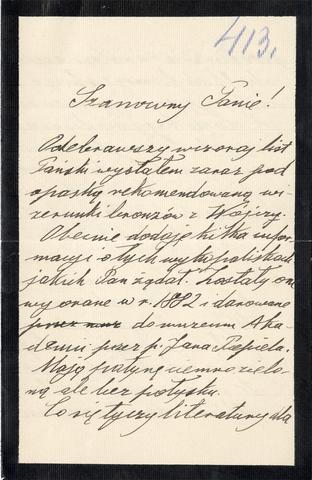 413.
Szanowny Panie!
Odebrawszy wczoraj list
Pański wysłałem zaraz pod
opaską rekomendowaną wi-
zerunki bronzów z Wójczy.
Obecnie dodaję kilka infor-
macyi o tych wykopaliskach
jakich Pan żądał. Zostały one
wyorane w r. 1882 i darowane
przez do muzeum Aka-
demii przez p. Jana Popiela.
Mają patynę ciemno zielo-
ną ale bez połysku.
Co się tyczy literatury dla